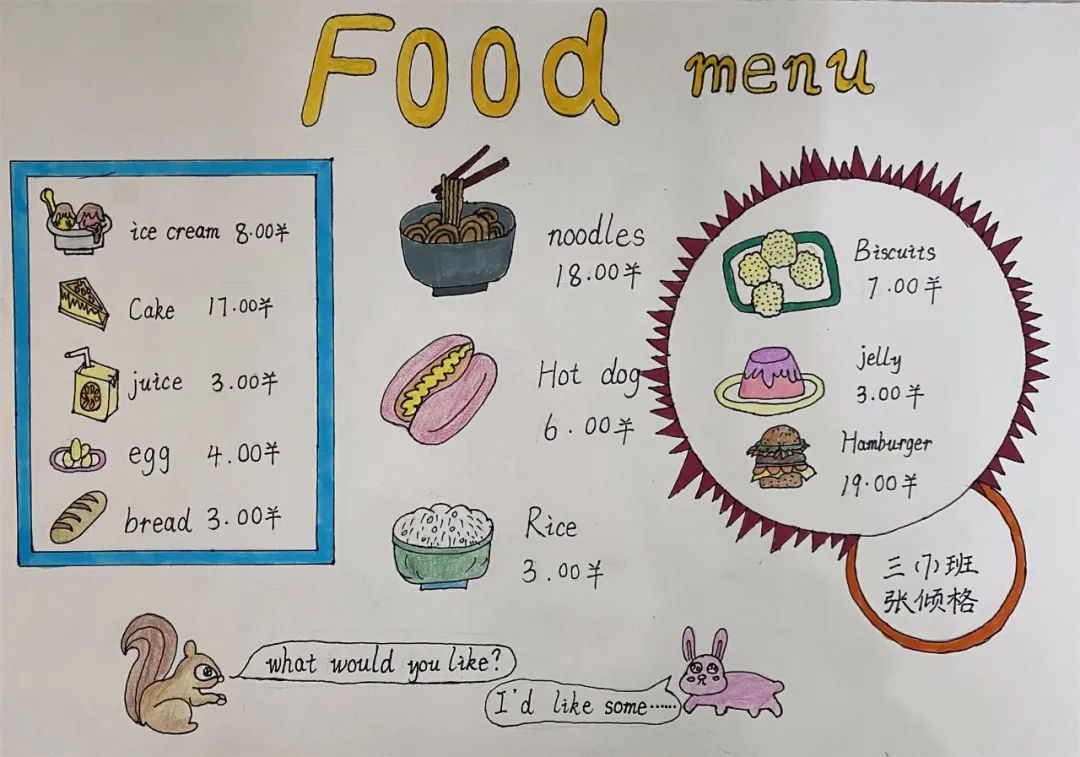 Food menu
ice cream 8.00羊
Cake 17.00羊
juice 3.00羊
egg 4.00羊
bread 3.00羊
noodles
18.00羊
Hot dog
6.00羊
Rice
3.00羊
Biscuits
7.00羊
jelly
3.00羊
Hamburger
19.00羊
三(7)班
张倾格
what would you like?
I'd like some……